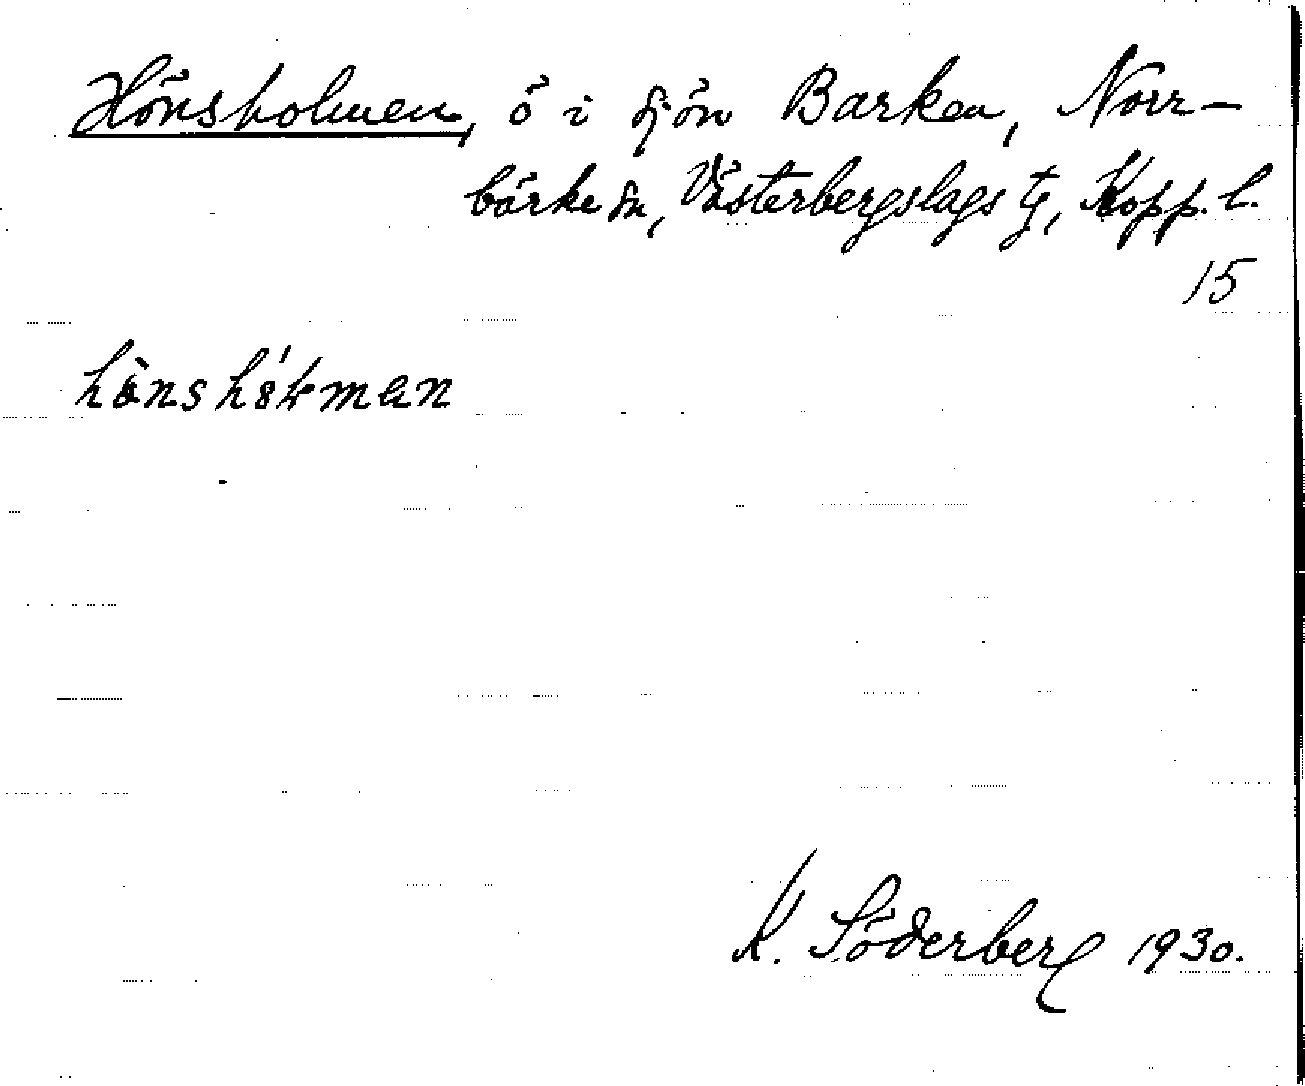 Hönsholmen, ö i sjön Barken, Norr-
bärke sn, Västerbergslags tg, Kopp. l.
15
K. Söderberg 1930.